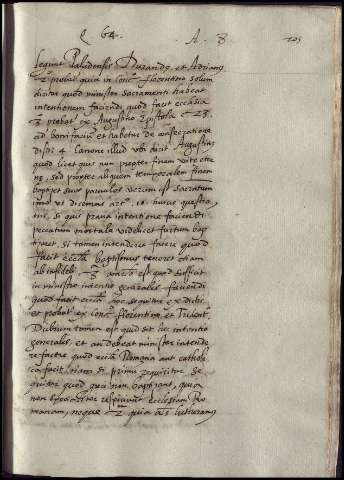 Q 64. A. 8 105
sequunt Paludensis Durandus et Adrianus
probat quia in Conc. florentino solum
dicitur quod minister sacramenti habeat
intentionem faciendi quod facit ecclesia
3 probat ex Augustino Epistola 23.
ad bonifacium et habetur de consecratione
dist. 4 Canone illud ubi dicit Augustinus
quod licet quis non propter finem vite
sed propter aliquem temporalem finem
baptizet suos parvulos verum est sacratum
imo ut dicemus art. 10. huius questio
nis, si quis prava intentione faciendi
peccatum mortale videlicet furtum bap
tizaret, si tamen intenderet facere quod
facit eccl. baptismus teneret etiam
ab infideli. est quod sufficit
in ministro intentio generalis faciendi
quod facit eccl. hoc sequitur ex dictis
et probat ex Conc. florentino et Trident.
Dubium tamen est quid sit hec intentio
generalis et an debeat minister intende
re facere quod eccl. Romana aut catholi
ca facit. nam si primum requiritur se
quitur quod greci non baptizant, quia
non
manam, neque 2 quia